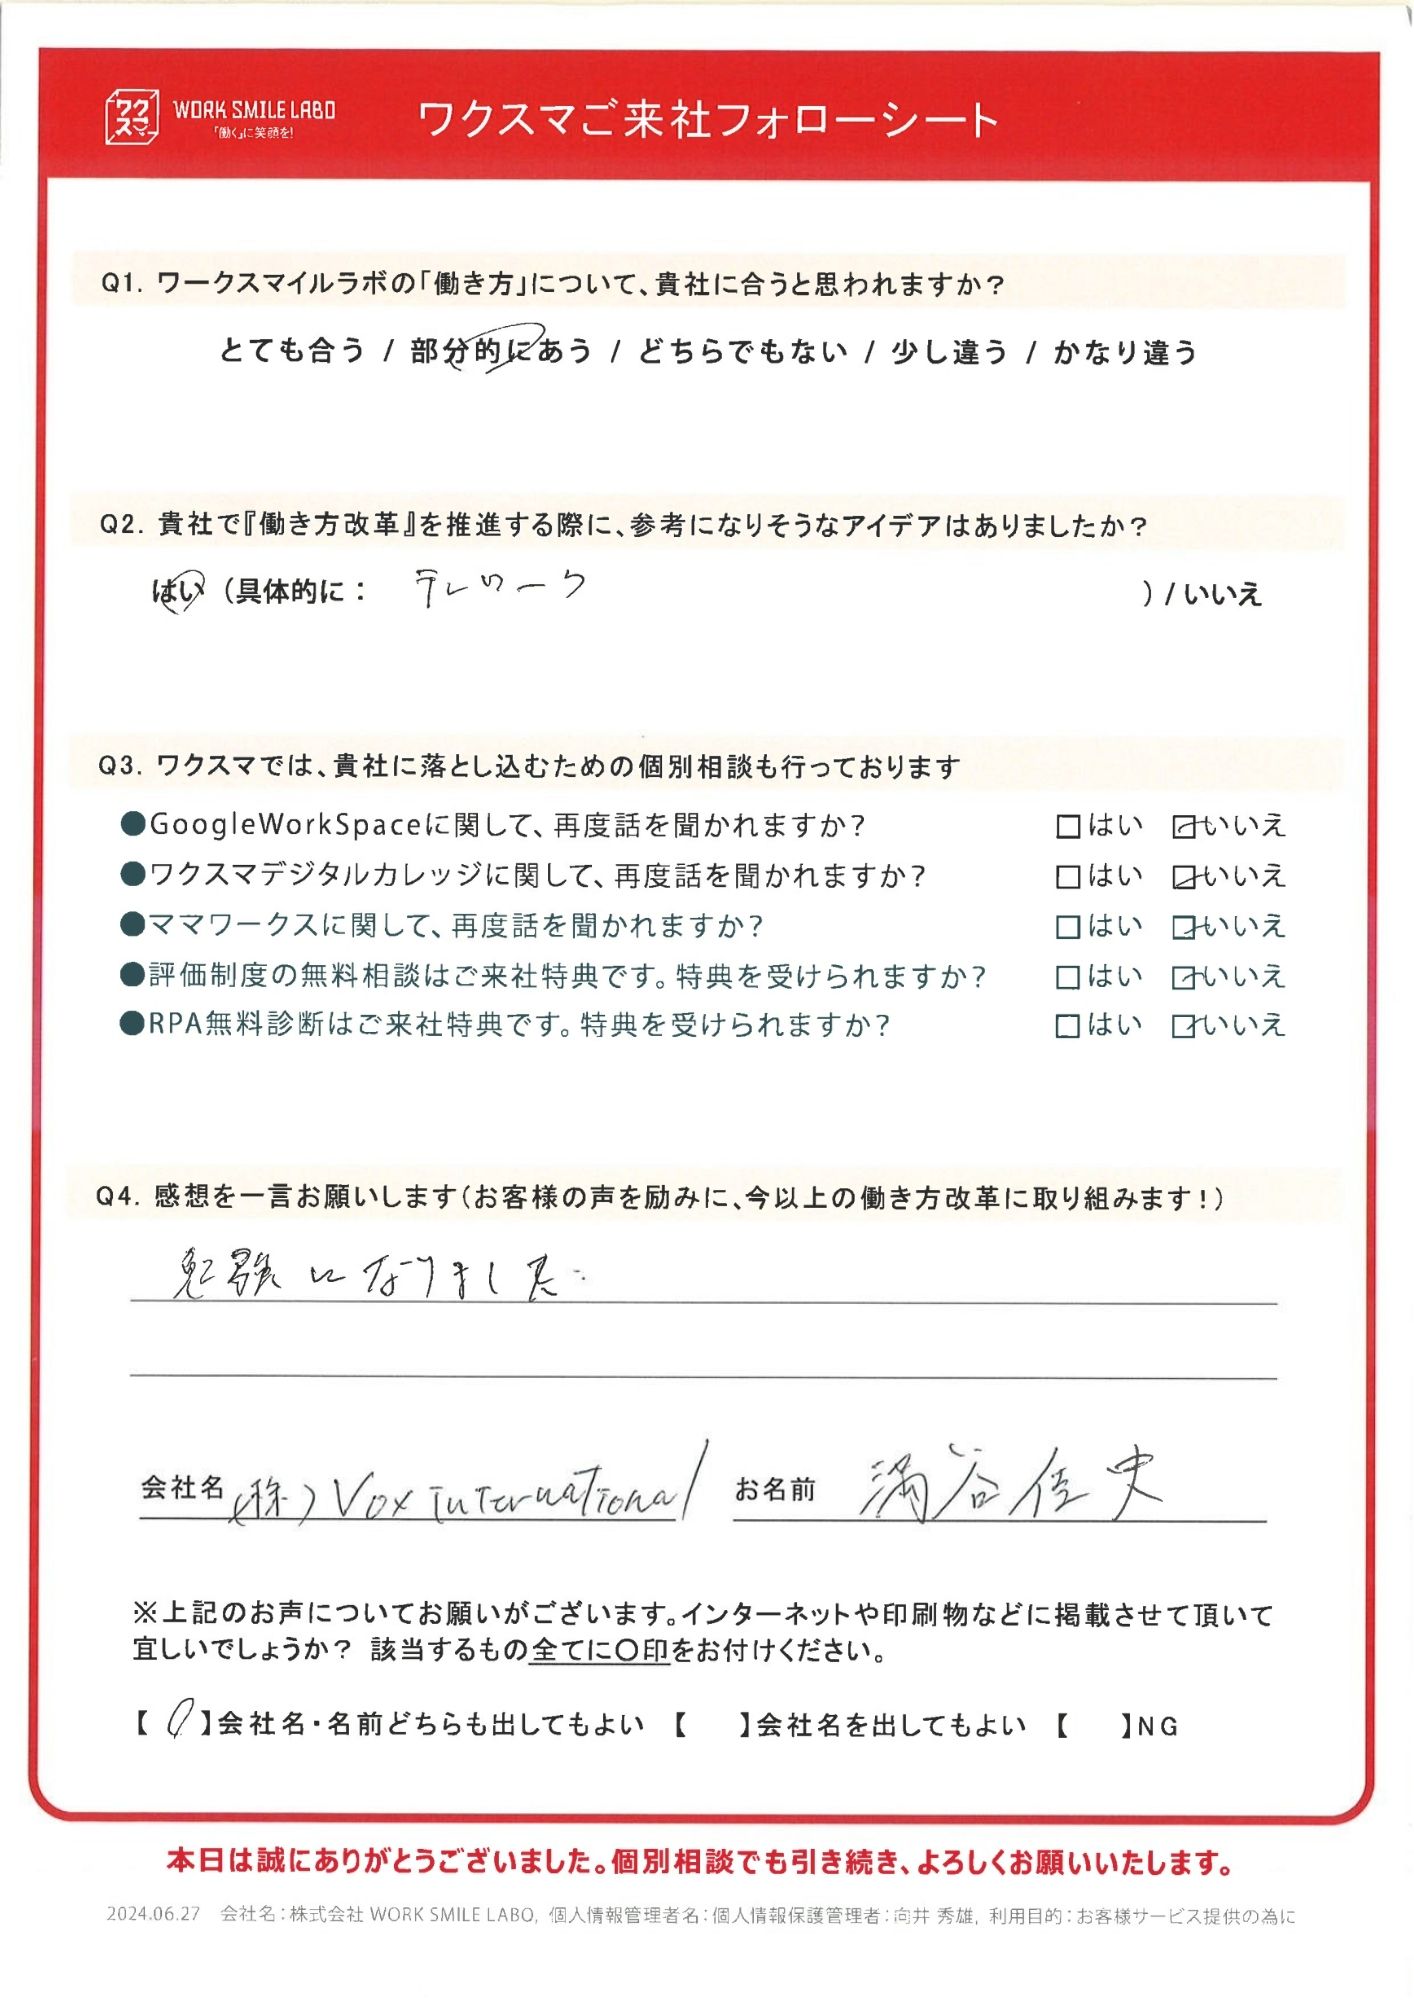 ワクスマ WORK SMILE LABO 「働く」に笑顔を! ワクスマご来社フォローシート
Q1. ワークスマイルラボの「働き方」について、貴社に合うと思われますか？
とても合う / 部分的にあう / どちらでもない / 少し違う / かなり違う
Q2. 貴社で『働き方改革』を推進する際に、参考になりそうなアイデアはありましたか？
はい （具体的に： テレワーク ）/ いいえ
Q3. ワクスマでは、貴社に落とし込むための個別相談も行っております
●GoogleWorkSpaceに関して、再度話を聞かれますか？ □はい ☑いいえ
●ワクスマデジタルカレッジに関して、再度話を聞かれますか？ □はい ☑いいえ
●ママワークスに関して、再度話を聞かれますか？ □はい ☑いいえ
●評価制度の無料相談はご来社特典です。特典を受けられますか？ □はい ☑いいえ
●RPA無料診断はご来社特典です。特典を受けられますか？ □はい ☑いいえ
Q4. 感想を一言お願いします（お客様の声を励みに、今以上の働き方改革に取り組みます！）
勉強になりました
会社名 (株) Vox International お名前 谷佳史
※上記のお声についてお願いがございます。インターネットや印刷物などに掲載させて頂いて
宜しいでしょうか？ 該当するもの全てに〇印をお付けください。
【 〇 】会社名・名前どちらも出してもよい 【 】会社名を出してもよい 【 】NG
本日は誠にありがとうございました。個別相談でも引き続き、よろしくお願いいたします。
2024.06.27 会社名：株式会社 WORK SMILE LABO, 個人情報管理者名：個人情報保護管理者：向井 秀雄, 利用目的：お客様サービス提供の為に